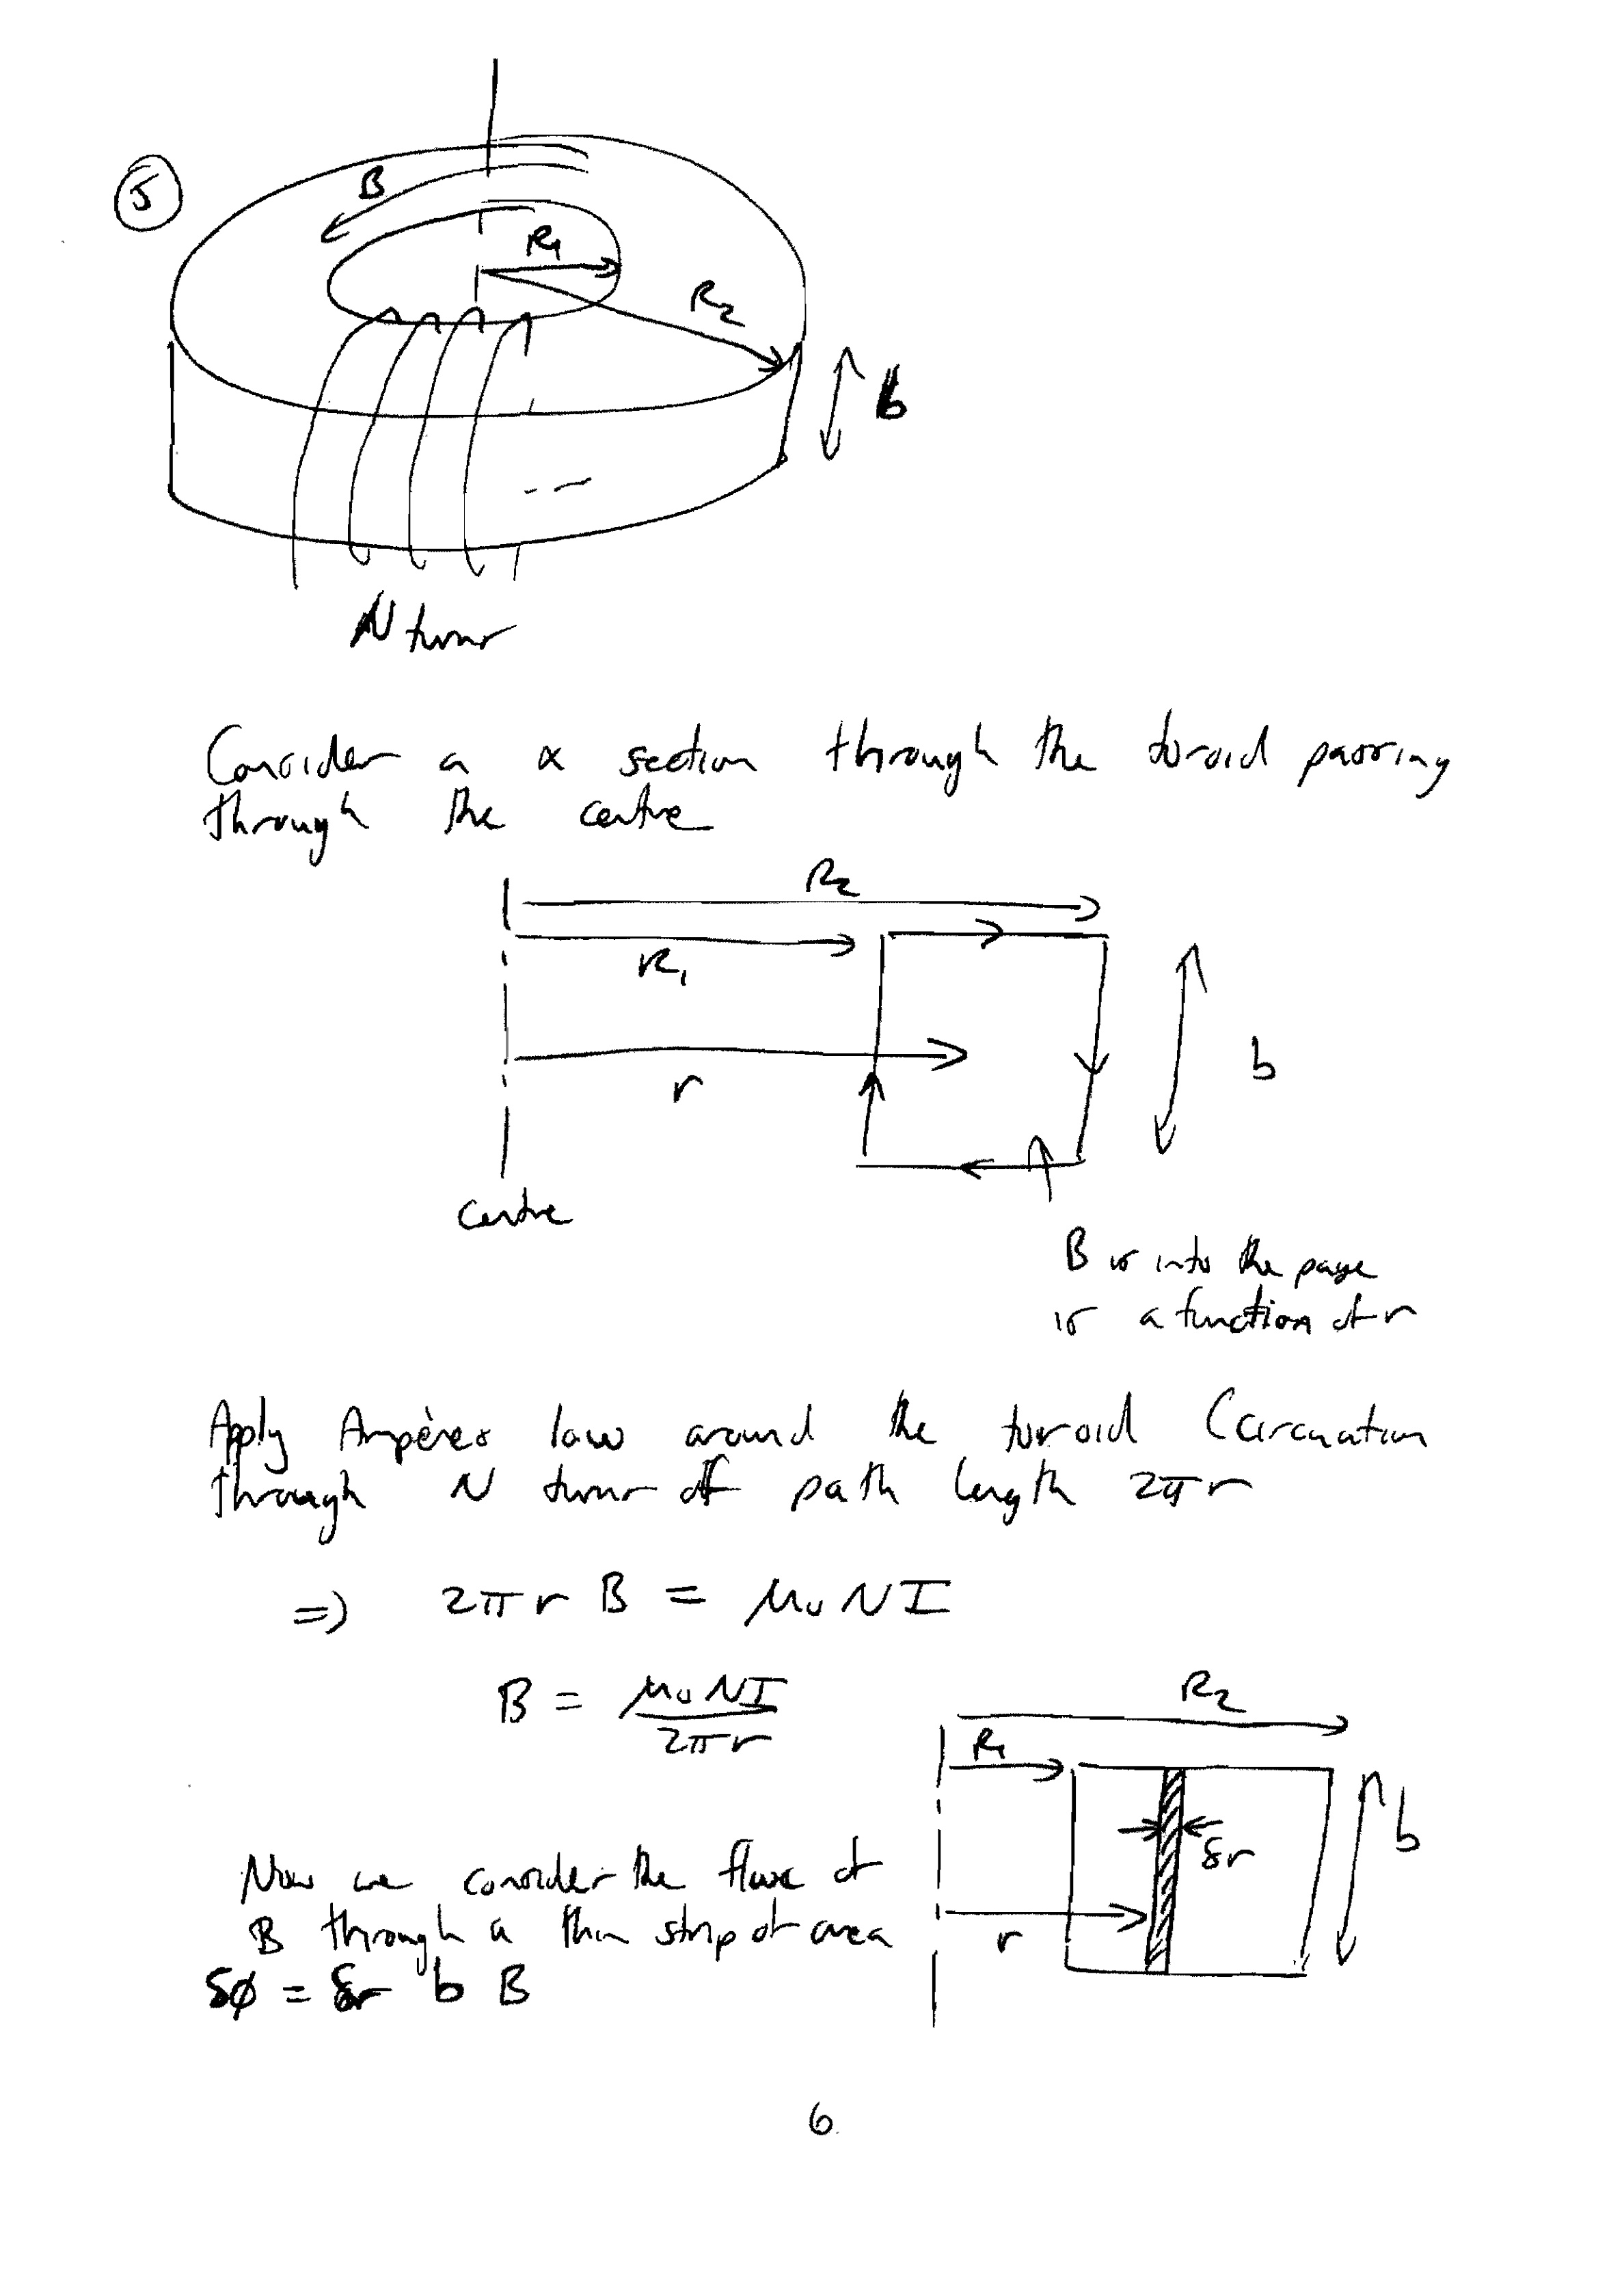 5
B
R1
R2
b
N turns
Consider a x section through the toroid passing
through the centre
R2
R1
r
b
centre
B is into the page
is a function of r
Apply Ampères law around the toroid (circuation
through N turns of path length 2πr
=> 2πr B = μ0 N I
B = μ0 N I / 2πr
R2
R1
δr
b
r
Now we consider the flux of
B through a thin strip of area
δφ = δr b B
6